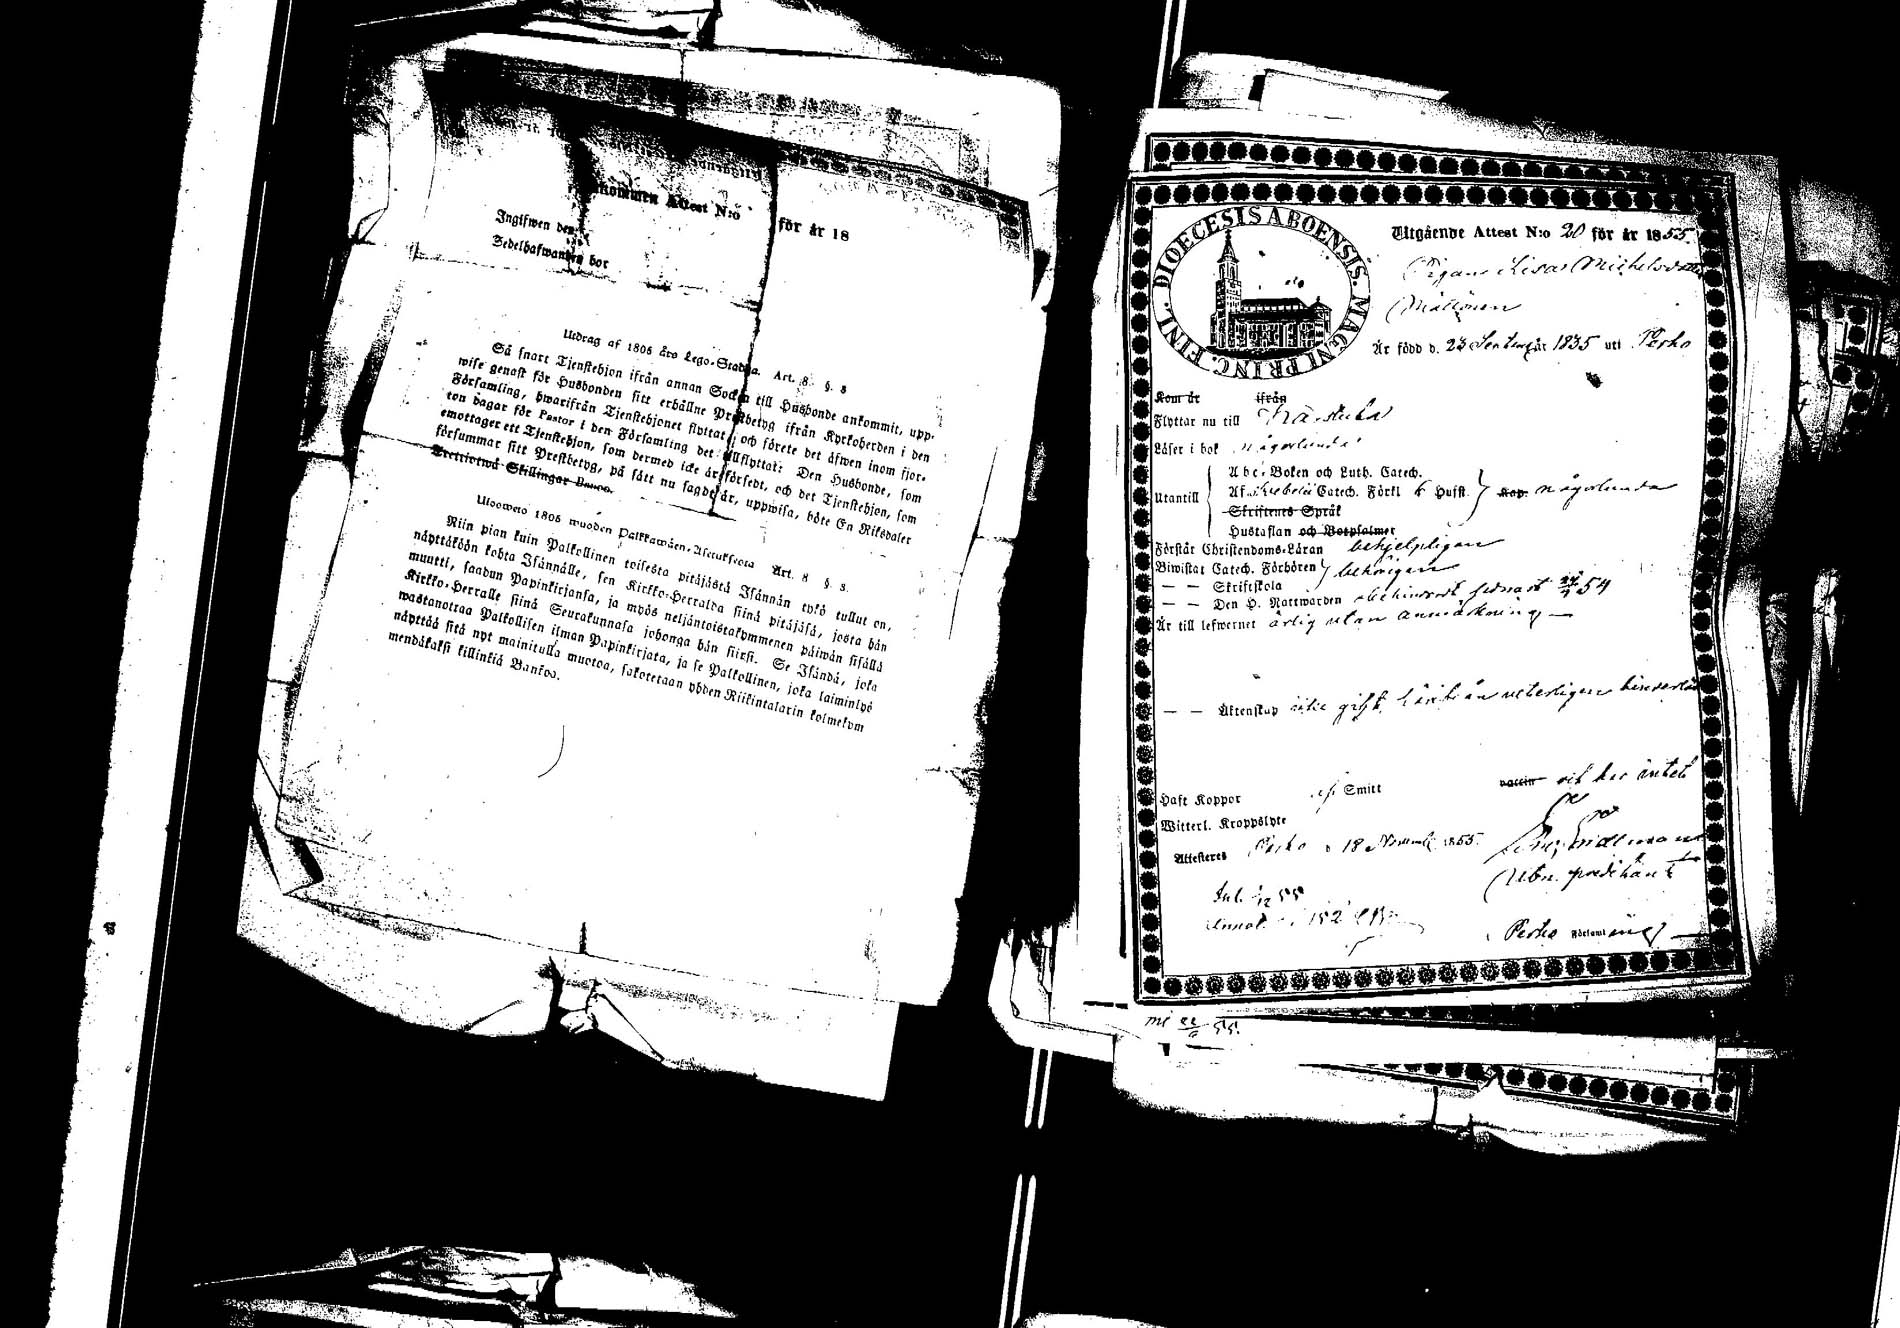 kommen Attest N:o för år 18
Ingifwen den
Sedelhafwanden bor
Utdrag af 1805 års Lego-Stadga. Art. 8. §. 8
Så snart Tjenstehjon ifrån annan Socken till Husbonde ankommit, upp-
wise genast för Husbonden sitt erhållne Prestbetyg ifrån Kyrkoherden i den
Församling, hwarifrån Tjenstehjonet flyttat, och förete det äfwen inom fjor-
ton dagar för Pastor i den Församling det tillflyttat: Den Husbonde, som
emottager ett Tjenstehjon, som dermed icke är försedt, och det Tjenstehjon, som
försummar sitt Prestbetyg, på sätt nu sagdt är, uppwisa, böte En Riksdaler
Trettiotwå Skillingar Banco.
Ulosweto 1805 wuoden Palkkawäen-Asetuksesta Art. 8 §. 8.
Niin pian kuin Palkollinen toisesta pitäjästä Isännän tykö tullut on,
näyttäköön kohta Isännälle, sen Kirkko-Herralda siinä pitäjäsä, josta hän
muutti, saadun Papinkirjansa, ja myös neljäntoistakymmenen päiwän sisällä
Kirkko-Herralle siinä Seurakunnasa johonga hän siirsi. Se Isändä, joka
wastanottaa Palkollisen ilman Papinkirjata, ja se Palkollinen, joka laiminlyö
näyttää sitä nyt mainitulla muotoa, sakotetaan yhden Riikintalarin kolmekym
mendäkaksi killinkiä Bankoa.
DIOECESIS ABOENSIS. MAGNI PRINC. FINL.
Utgående Attest N:o 20 för år 1855.
Pigan Lisa Michelsdotter
Är född d. 23 September år 1835 uti Perho
Kom år ifrån
Flyttar nu till
Läser i bok någorlunda
Utantill
Abc-Boken och Luth. Catech.
Af Svebelii Catech. Förkl. & Husst. Kap. någorlunda
Skriftenes Språk
Hustaflan och Botpsalmer
Förstår Christendoms-Läran behjelpligen
Biwistat Catech. Förhören behörigen
— — Skriftskola
— — Den H. Nattwarden sednast 54
Är till lefwernet ärlig utan anmärkning —
— — Äktenskap icke gift, härtill än veterligen hinderlös
Haft Koppor ej Smitt vaccin
Witterl. Kroppslyte
Attesteras Perho d 18 Novemb. 1855.
Perho Församling